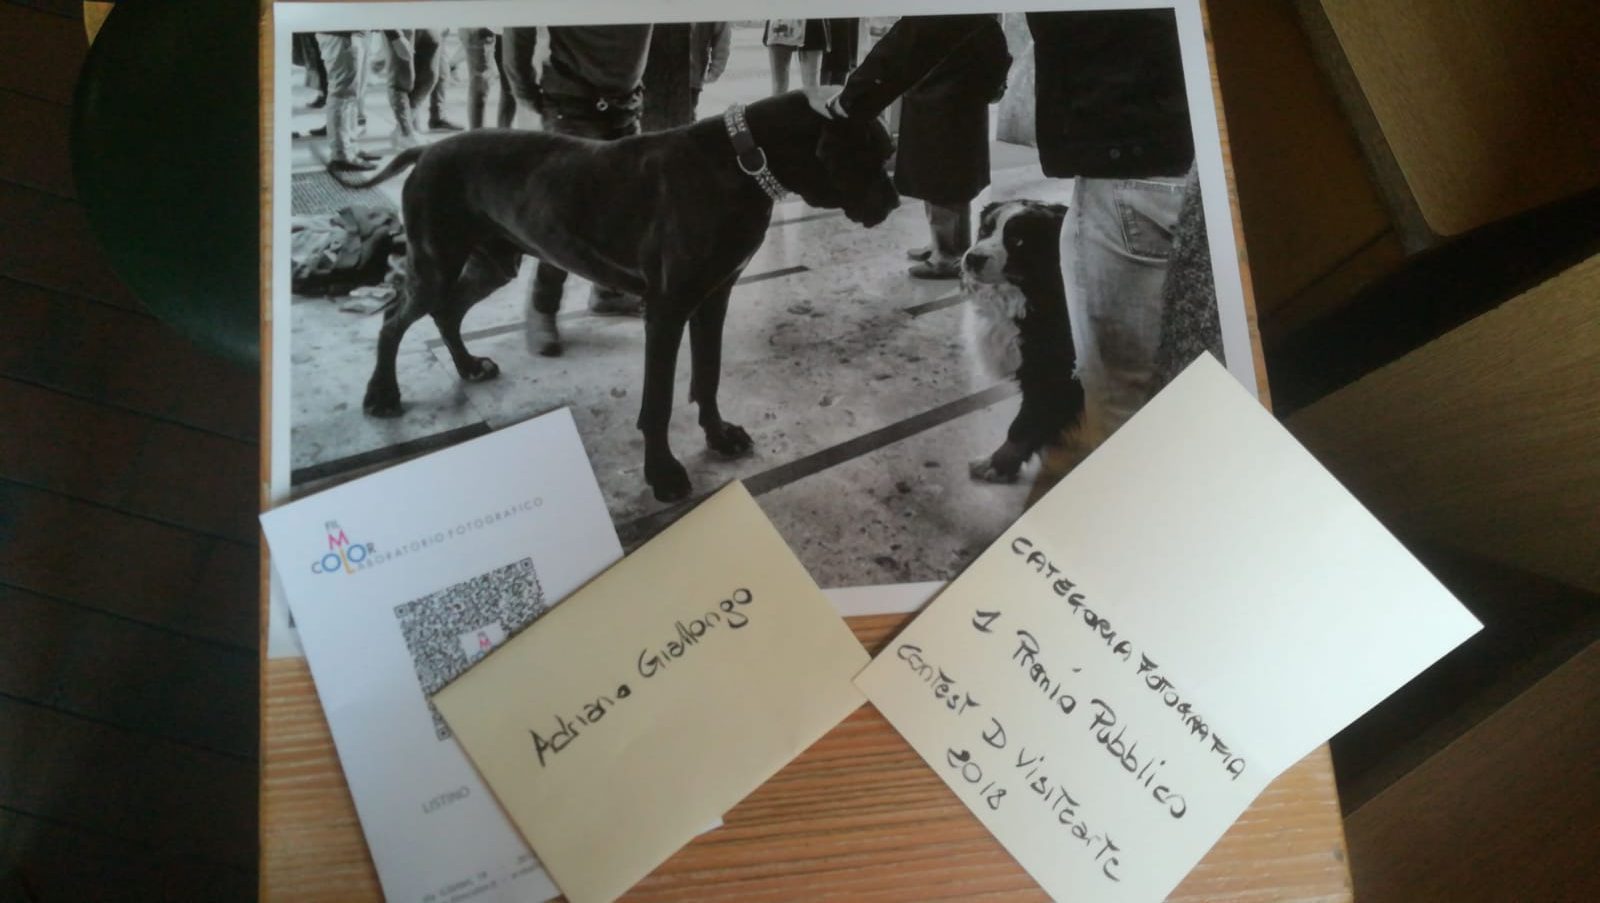 FILM
COLOR
LABORATORIO FOTOGRAFICO
LISTINO
Adriano Giallongo
CATEGORIA FOTOGRAFIA
1 Premio Pubblico
CONTEST D VISITEARTE
2018